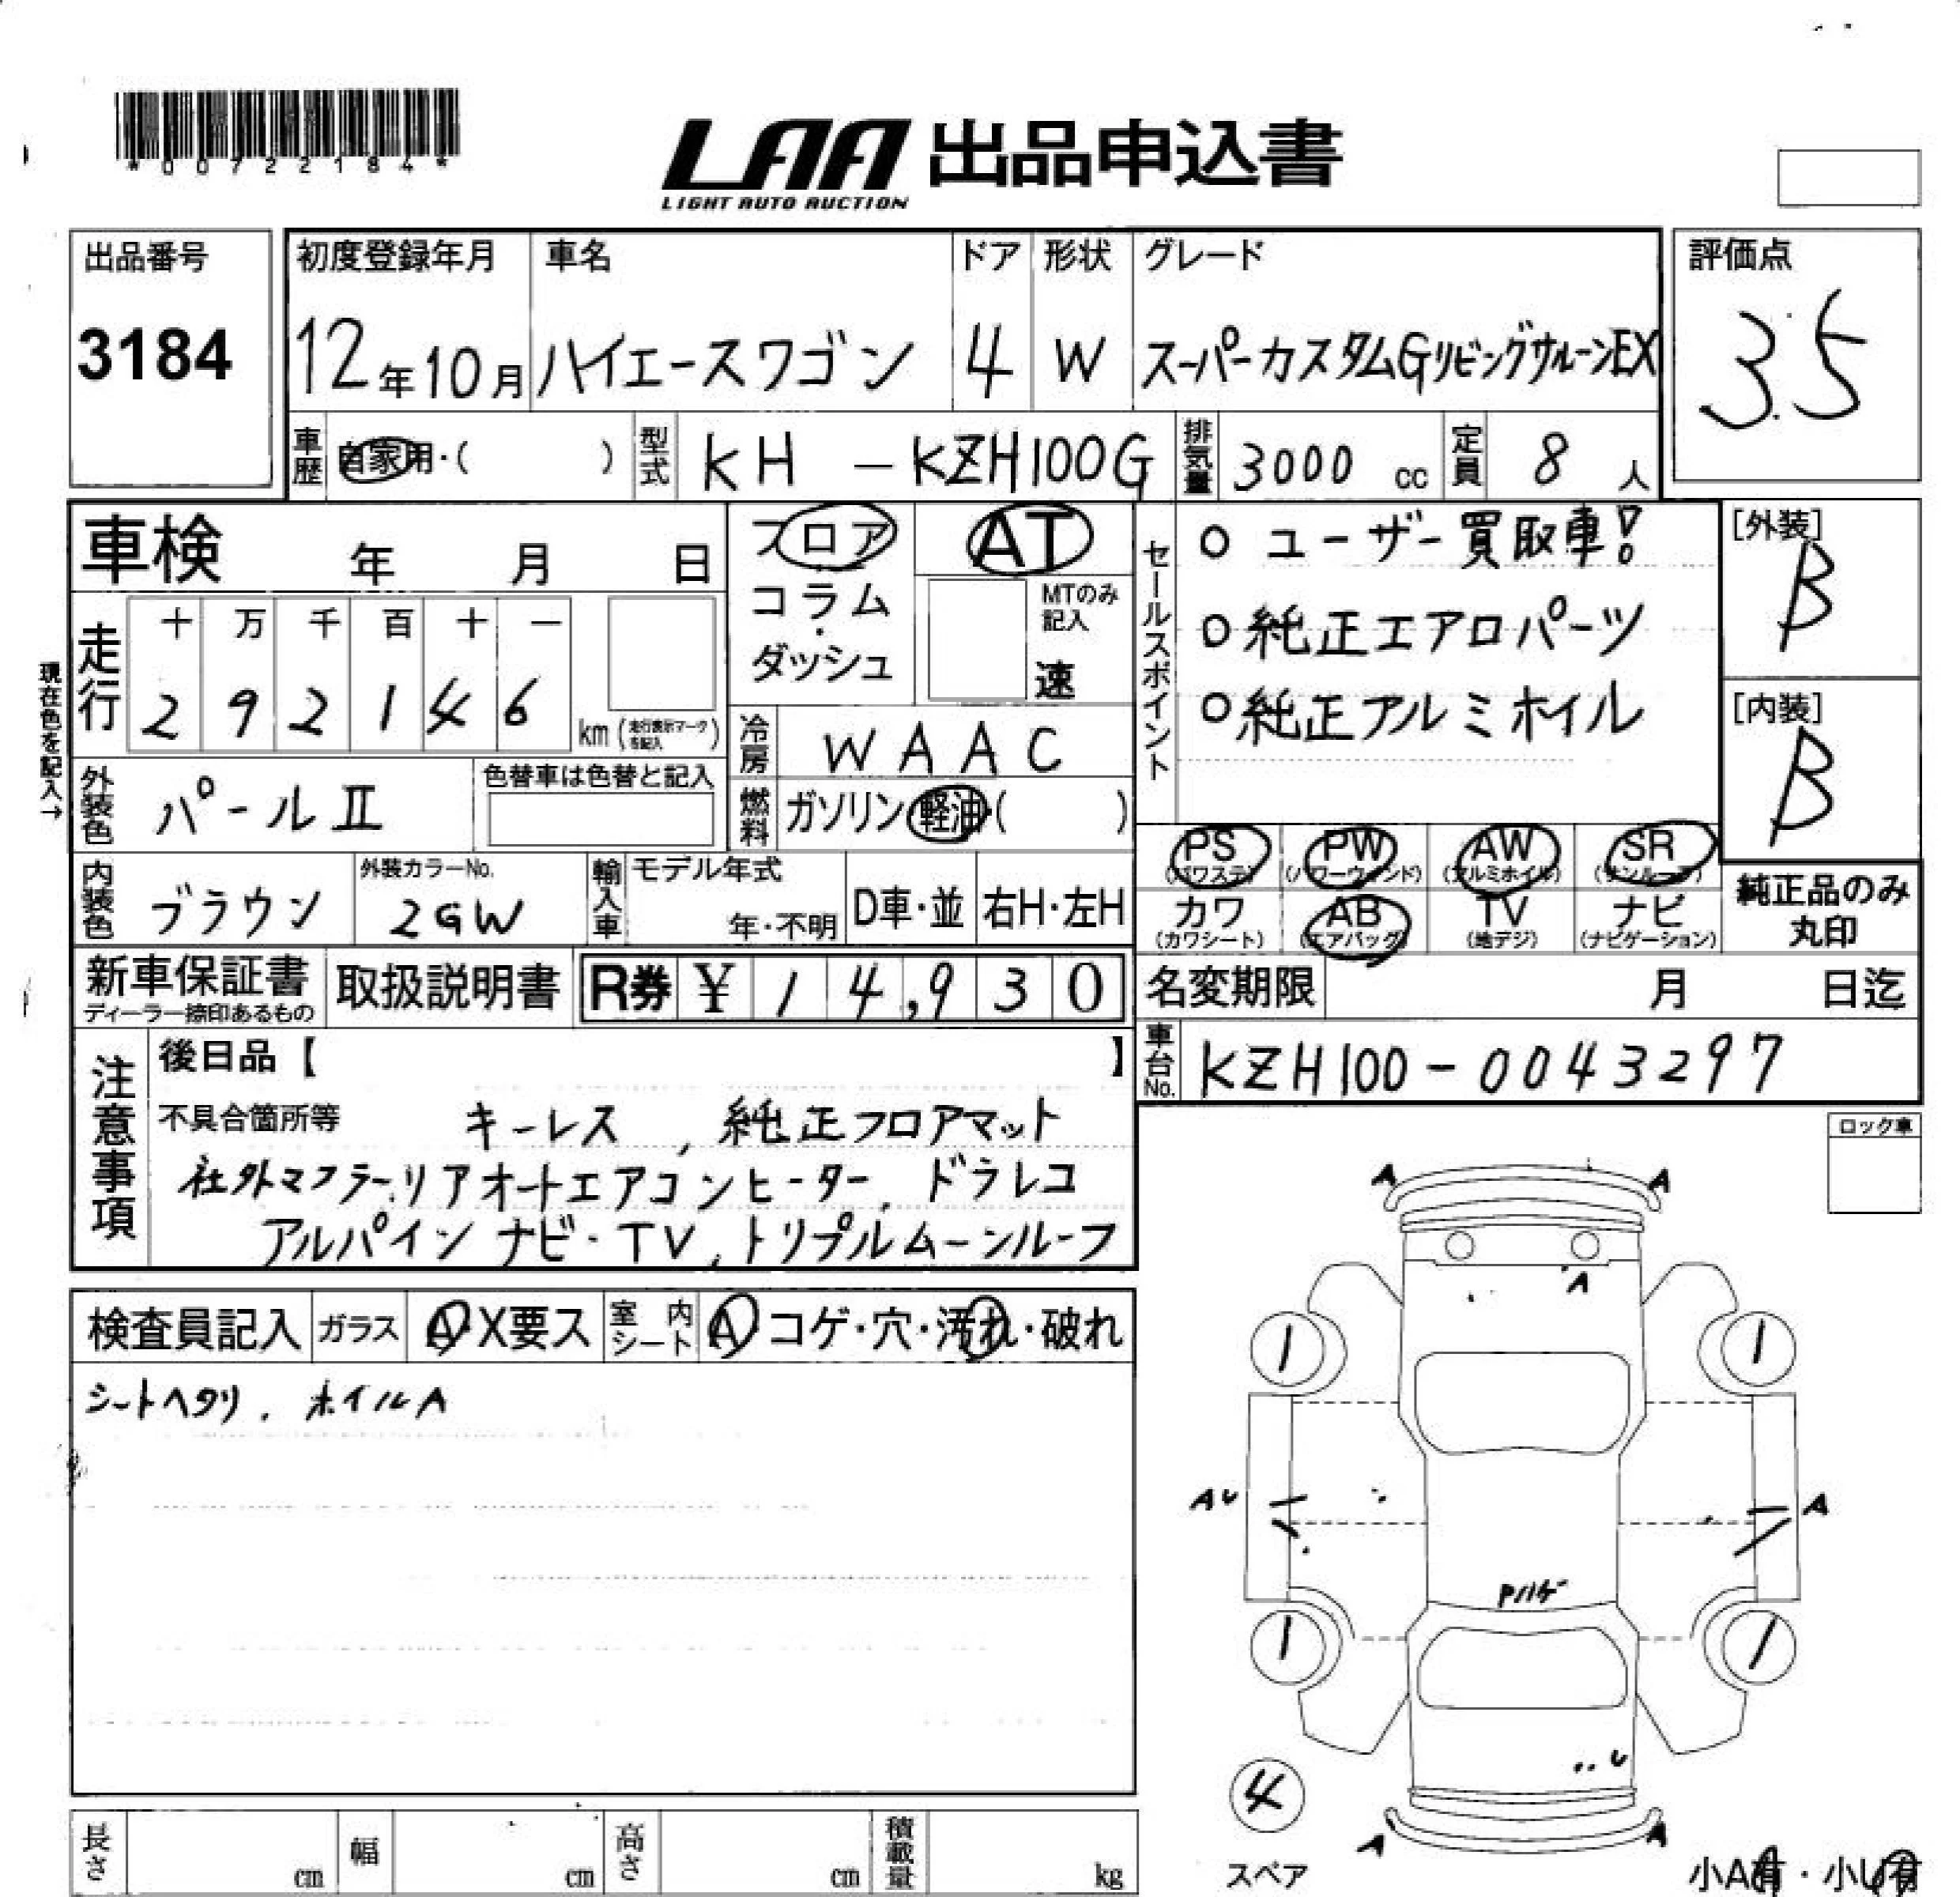 *00722184*
LAA 出品申込書
LIGHT AUTO AUCTION
出品番号
3184
初度登録年月 車名 ドア 形状 グレード
12年10月 ハイエースワゴン 4 W スーパーカスタムGリビングサルーンEX
評価点
3.5
車歴 自家用・( ) 型式 KH - KZH100G 排気量 3000 cc 定員 8 人
車検 年 月 日
フロア
コラム
・
ダッシュ
AT
MTのみ記入
速
セールスポイント
○ ユーザー買取車!
○ 純正エアロパーツ
○ 純正アルミホイル
[外装]
B
[内装]
B
現在色を記入→
走行 十 万 千 百 十 一
2 9 2 1 4 6 km (走行表示マークを記入)
冷房 WAAC
外装色 パールⅡ 色替車は色替と記入
燃料 ガソリン・軽油・( )
PS PW AW SR
(パワステ) (パワーウィンド) (アルミホイル) (サンルーフ)
カワ AB TV ナビ
(カワシート) (エアバッグ) (地デジ) (ナビゲーション)
純正品のみ
丸印
内装色 ブラウン 外装カラーNo. 2GW 輸入車 モデル年式 年・不明 D車・並 右H・左H
新車保証書 取扱説明書 R券 ¥ 14,930
ディーラー捺印あるもの
名変期限 月 日迄
車台No. KZH100-0043297
注意事項
後日品【 】
不具合箇所等 キーレス , 純正フロアマット
社外マフラー,リアオートエアコンヒーター, ドラレコ
アルパイン ナビ・TV, トリプルムーンルーフ
ロック車
検査員記入 ガラス A・X要ス 室内シート A コゲ・穴・汚れ・破れ
シートヘタリ. ホイルA
A A
A
1 1
AU A
Pハゲ
1 1
U
4
スペア
A A
小A有・小U有
長さ cm 幅 cm 高さ cm 積載量 kg